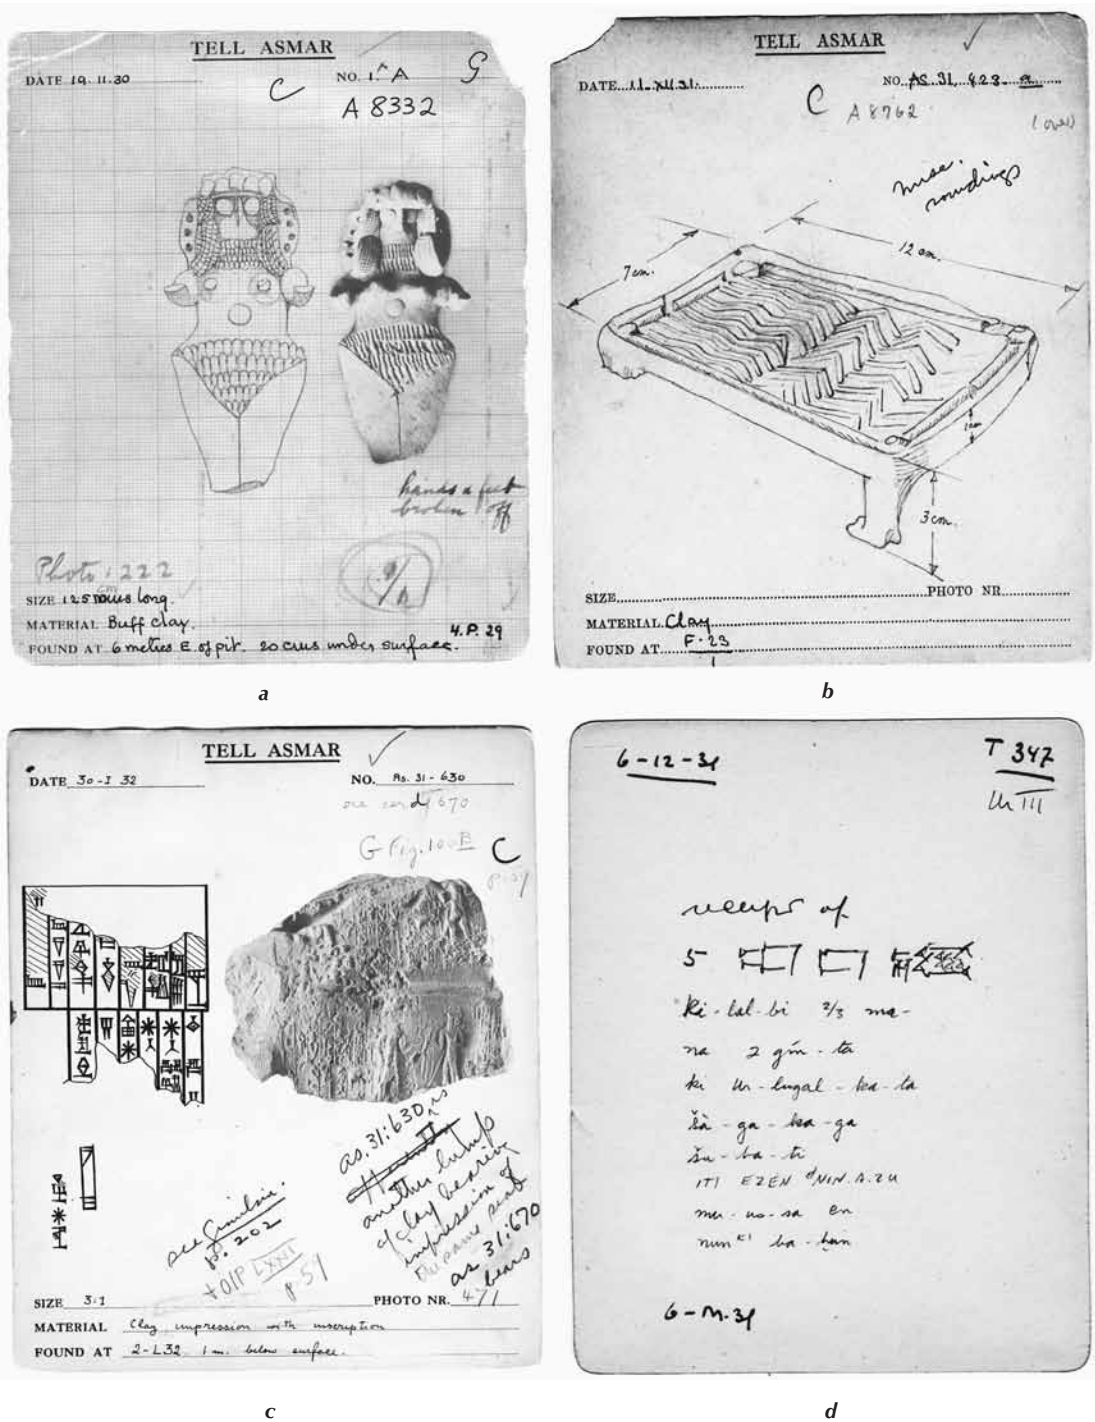 TELL ASMAR
DATE 19.11.30
NO. 1.^A
G
C
A 8332
hands & feet
broken off
Photo: 222
SIZE 125 mms long.
cm
MATERIAL Buff clay.
4.P.29
FOUND AT 6 metres E. of pit. 20 cms under surface.
a
TELL ASMAR
DATE 11.XII.31.
NO. AS. 31, 423 a
C
A 8762
(over)
misc.
7 cm.
12 cm.
1 cm
3 cm.
SIZE
PHOTO NR
MATERIAL Clay
FOUND AT F.23
1
b
TELL ASMAR
DATE 30-I 32
NO. As. 31-630
see card 670
G Fig. 100 B
C
p. 59
as. 31:630 is
another lump
of clay bearing
impression of
the same seal
as 31:670
bears
see Gimilsin.
p. 202
+ OIP LXXII
p. 59
SIZE 3:1
PHOTO NR. 471
MATERIAL Clay impression with inscription
FOUND AT 2-L32 1 m. below surface.
c
6-12-31
T 347
Ur III
receipt of
5
ki-lal-bi 2/3 ma-
na 2 gín-ta
ki Ur-lugal-ka-ta
šà-ga-ka-ga
šu-ba-ti
ITI EZEN ᵈNIN.A.ZU
mu-us-sa en
nun ᵏⁱ ba-ḫun
6-M.31
d